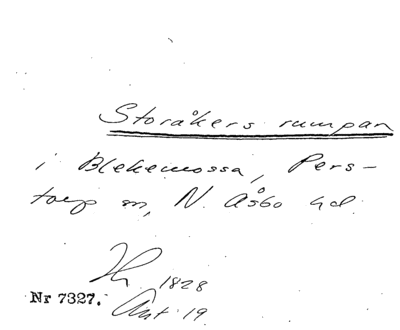 Storåkers rumpan
i Blekemossa, Pers-
torp sn, N. Åsbo hd.
1828
Nr 7327. Ant. 19